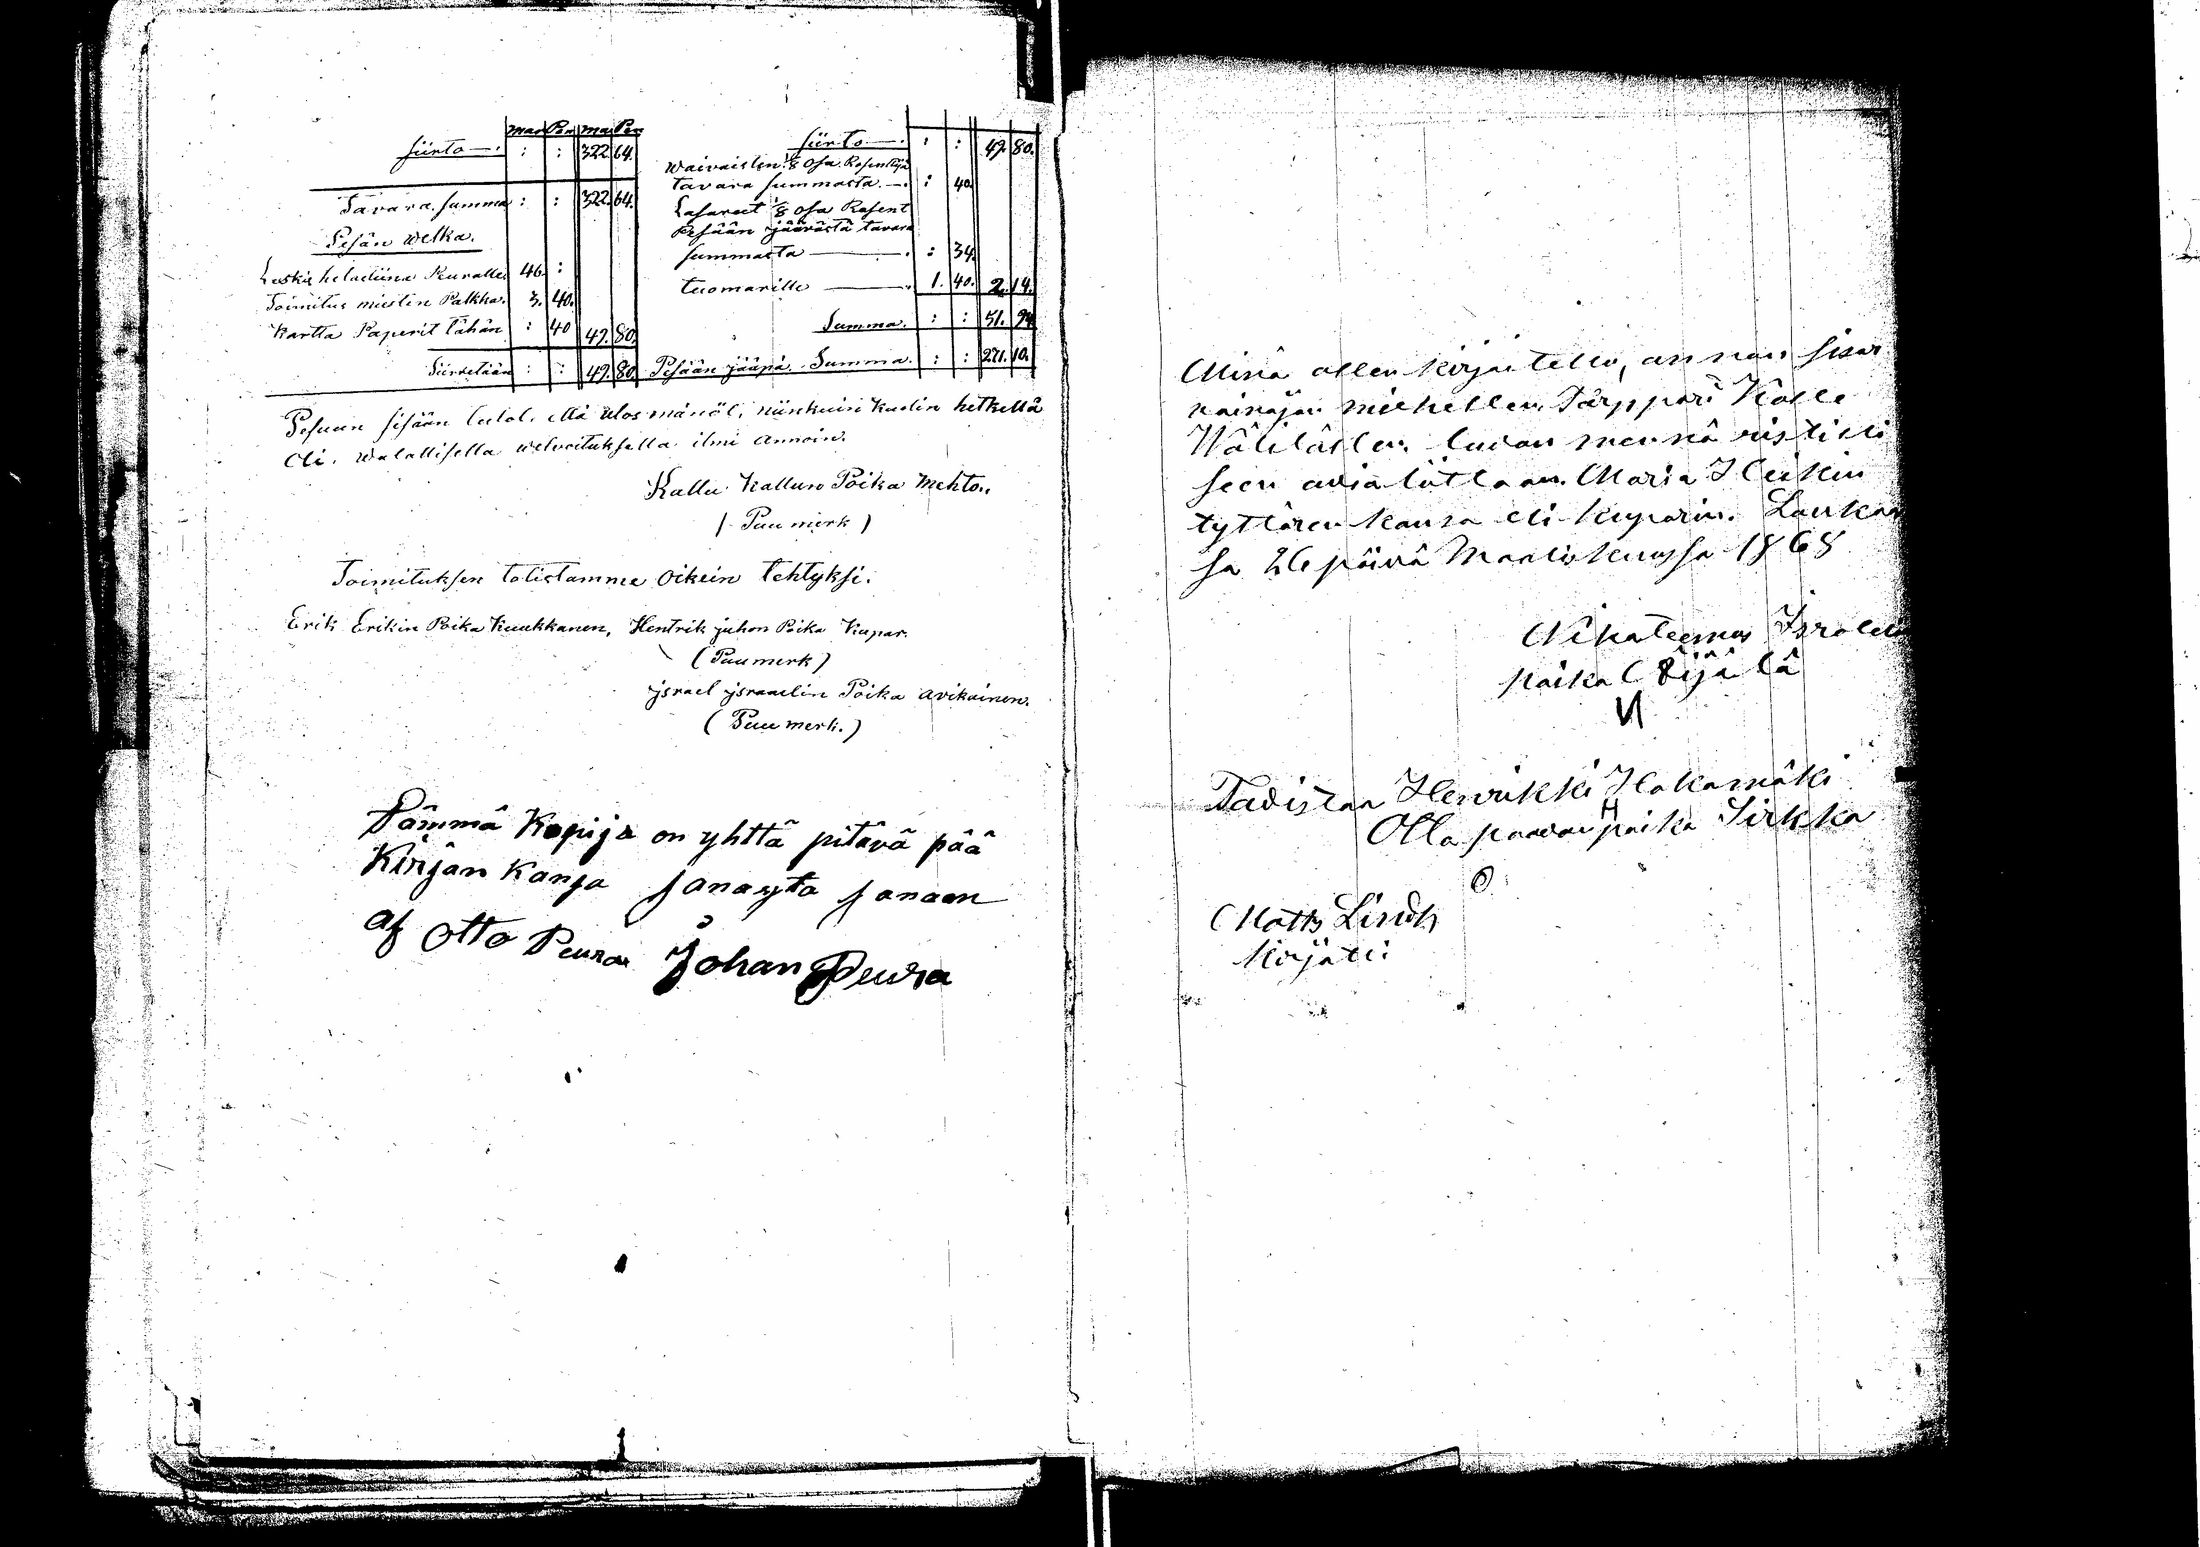 mar Pen mar Pen
siirto — : : 322. 64.
Tavara summa : : 322. 64.
Pesän welka.
Leskis helastiina Keuralle 46. :
Toimitus miesten Palkka. 3. 40.
Kartta Paperit tähän : 40 49. 80.
Siirretään : : 49. 80
siirto — : : 49. 80.
waivaisten 1/8 osa Rosenttija
tavara summasta — : 40.
Lasareet 1/8 osa Rosent
Pesään jäävästä tavara
summasta — : 34.
tuomarille — 1. 40. 2. 14.
Summa. : : 51. 94
Pesään jääpä. Summa. : : 271. 10.
Pesuun sisään tulot. että ulos mänöt, niinkuin kuolin hetkellä
oli. walallisella welvoituksella ilmi annoin.
Kallu Kallun Poika Mehto..
( Puu merk )
Toimituksen totistamme oikein tehtyksi.
Erik Erikin Poika Kuukkanen, Hentrik juhon Poika Kupar.
(Puu merk)
jsrael jsraaelin Poika avikainen.
(Puu merk.)
Tämmä Kopija on yhttä pitävä pää
Kirjan kansa sanasta sanaan
af Otto Peura Johan Peura
Minä allen kirjoitettu, annan sisar
vainajan miehellen Törppöri Kalle
Wälilällen. luvan mennä ristilli
seen avioliittoon. Maria Heikin
tyttären kansa eli kuparin. Laukaa
sa 26 päivä Maaliskuussa 1868
Nikateemus Israelin
poika Äijälä
Todistaa Henrikki Hakamäki
H
Olla paavan poika Sirkka
Matts Lindh
kirjoti: